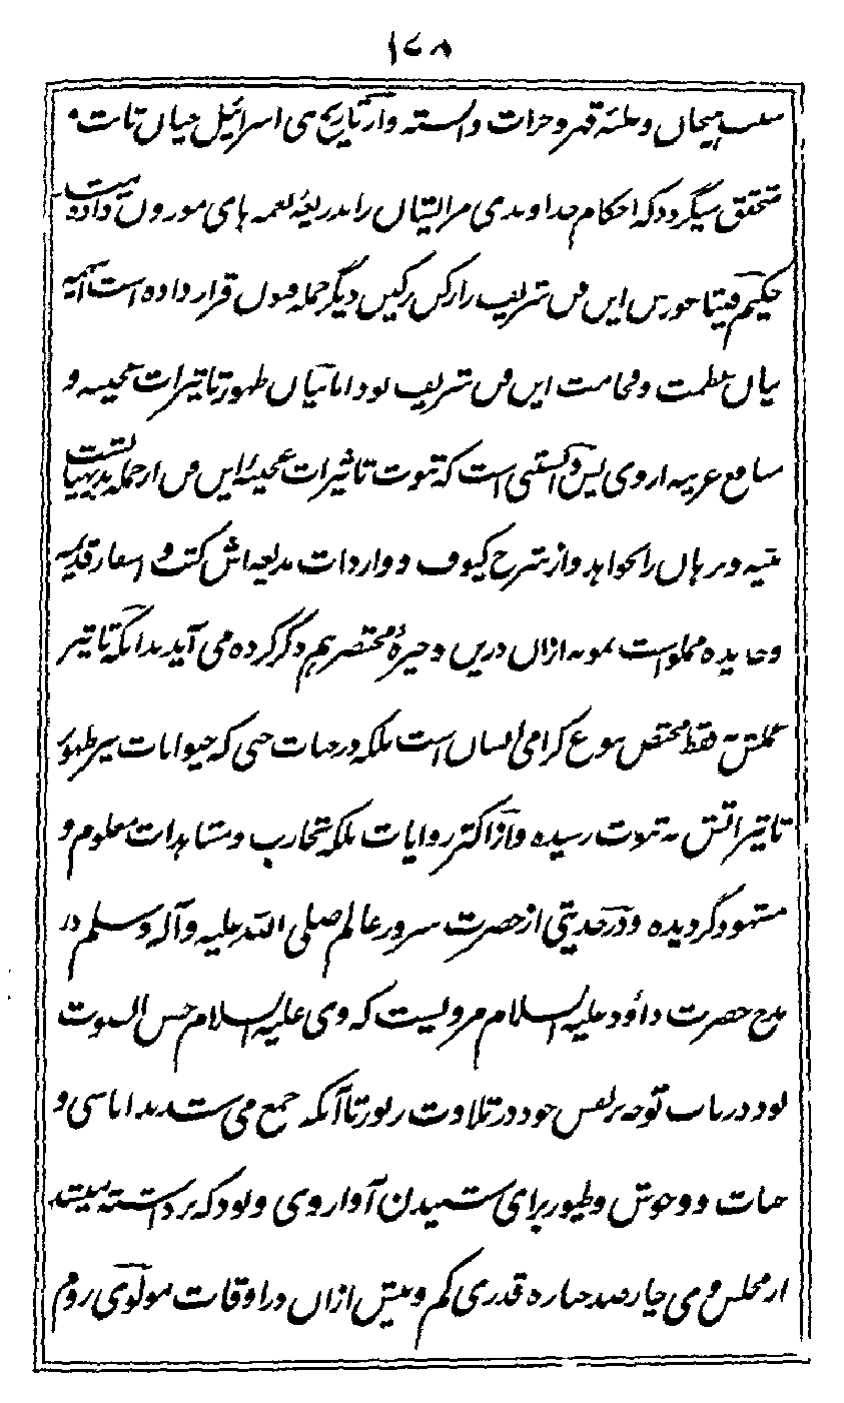 ۱۷۸
سبب هیجان و غلبهٔ قهر و حرارت دانسته و از تاریخ بنی اسرائیل چنان ثابت و
متحقق میگردد که احکام خداوندی مر الیشان را بذریعهٔ نغمه های موزون داده میشد
حکیم فیثاغورس این فن شریف را رکن رکین دیگر جمله فنون قرار داده است اینهمه
بیان عظمت و فخامت این فن شریف بود اما بیان ظهور تاثیرات عجیبه و
سامع غریبه از وی پس دانستنی است که ثبوت تاثیرات عجیبهٔ این فن از جمله بدیهیات است
بینه و برهان را نخواهد و از شرح کیوف و واردات بدیعه اش کتب و اسفار قدیمه
و جدیده مملو است نمونه ازان درین وجیزهٔ مختصر هم ذکر کرده می آید بدانکه تاثیر
عملش نه فقط مختص بنوع گرامی انسان است بلکه در جنات حتی که حیوانات نیز ظهور
تاثیراتش به ثبوت رسیده و از اکثر روایات بلکه تجارب و مشاهدات معلوم و
مشهود گردیده و در حدیثی از حضرت سرور عالم صلی الله علیه و آله وسلم در
مدح حضرت داؤد علیه السلام مرویست که وی علیه السلام حسن الصوت
بود در باب توجه بر نفس خود در تلاوت زبور تا آنکه جمع می شدند اناسی و
جنات و وحوش و طیور برای شنیدن آواز وی و بود که برداشته میشد
از مجلس وی چارصد جنازه قدری کم و بیش ازان در اوقات مولوی روم